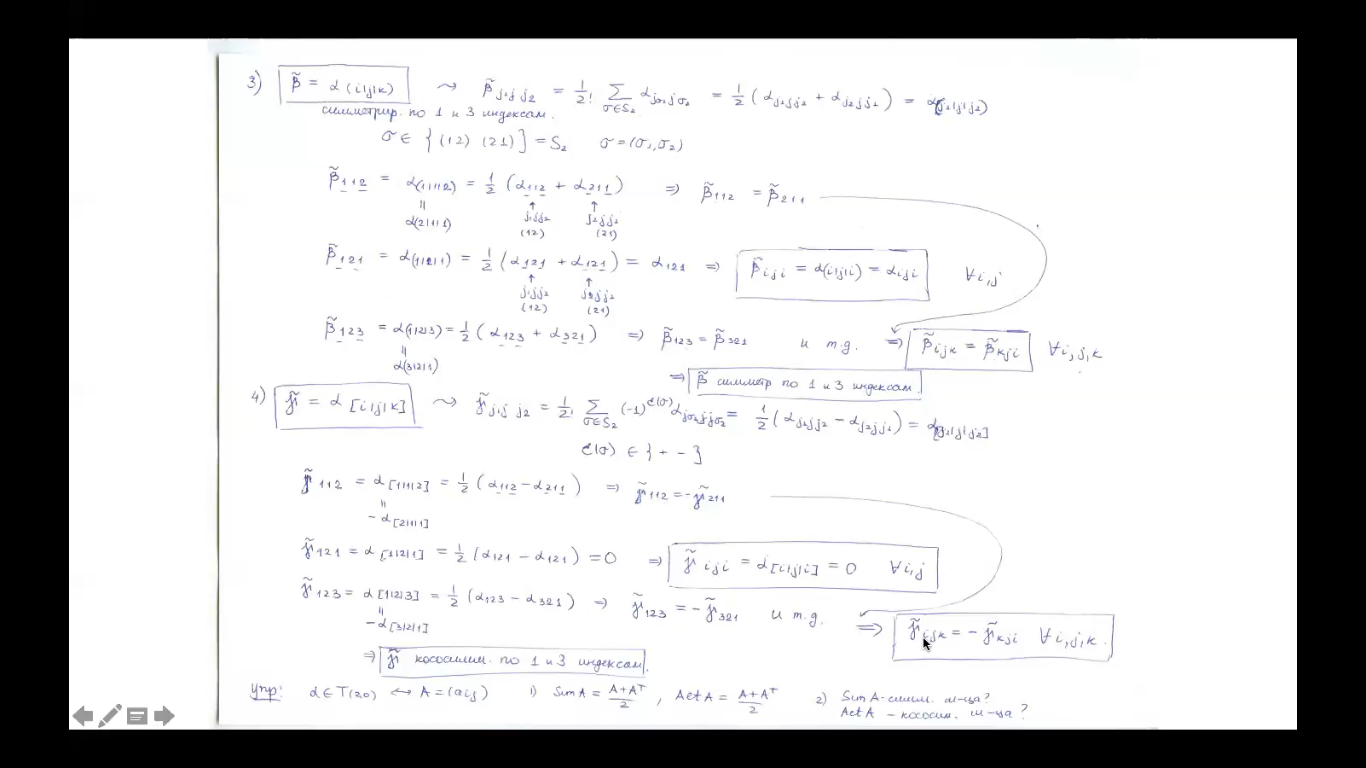 3) β̃ = α(i|j|k) ⇝ β̃ j₁ j j₂ = 1/2! ∑ σ∈S₂ α jσ₁ j jσ₂ = 1/2 (α j₁jj₂ + α j₂jj₁) = α(j₁|j|j₂)
симметрир. по 1 и 3 индексам.
σ ∈ {(12) (21)} = S₂ σ = (σ₁,σ₂)
β̃ 112 = α(1|1|2) = 1/2 (α112 + α211) ⇒ β̃ 112 = β̃ 211
॥ ↑ ↑
α(2|1|1) j₁jj₂ j₂jj₁
(12) (21)
β̃ 121 = α(1|2|1) = 1/2 (α121 + α121) = α121 ⇒ β̃ iji = α(i|j|i) = α iji ∀i,j
↑ ↑
j₁jj₂ j₂jj₁
(12) (21)
β̃ 123 = α(1|2|3) = 1/2 (α123 + α321) ⇒ β̃ 123 = β̃ 321 и т.д. ⇒ β̃ ijk = β̃ kji ∀i,j,k
॥
α(3|2|1)
⇒ β̃ симметр по 1 и 3 индексам.
4) γ̃ = α[i|j|k] ⇝ γ̃ j₁ j j₂ = 1/2! ∑ σ∈S₂ (-1)^ε(σ) α jσ₁ j jσ₂ = 1/2 (α j₁jj₂ − α j₂jj₁) = α[j₁|j|j₂]
ε(σ) ∈ {+ −}
γ̃ 112 = α[1|1|2] = 1/2 (α112 − α211) ⇒ γ̃ 112 = −γ̃ 211
॥
− α[2|1|1]
γ̃ 121 = α[1|2|1] = 1/2 (α121 − α121) = 0 ⇒ γ̃ iji = α[i|j|i] = 0 ∀i,j
γ̃ 123 = α[1|2|3] = 1/2 (α123 − α321) ⇒ γ̃ 123 = − γ̃ 321 и т.д. ⇒ γ̃ ijk = − γ̃ kji ∀i,j,k.
॥
− α[3|2|1]
⇒ γ̃ кососимм. по 1 и 3 индексам.
Упр: α ∈ T(20) ↔ A = (aij) 1) Sim A = (A+Aᵀ)/2 , Aet A = (A+Aᵀ)/2 2) Sim A - симм. м-ца?
Aet A – кососим. м-ца?